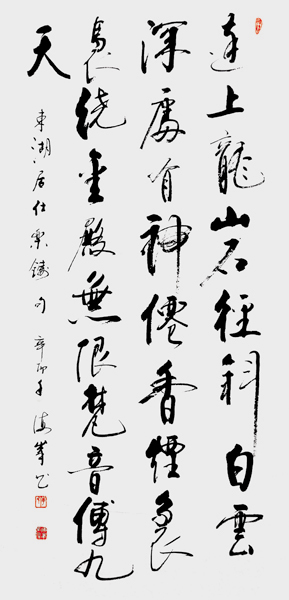 遠上龍山石徑斜白雲
深處有神僊香煙裊
裊繞金殿無限梵音傳九
天
東湖居仕樂鑄句 辛卯年海峰書